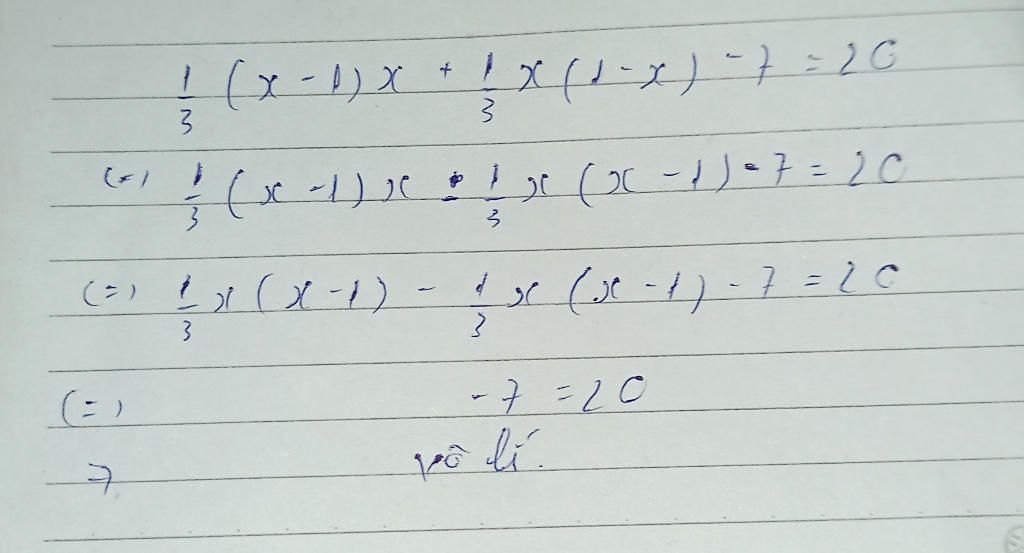 1/3 (x - 1) x + 1/3 x (1 - x) - 7 = 20
(=) 1/3 (x - 1) x - 1/3 x (x - 1) - 7 = 20
(=) 1/3 x (x - 1) - 1/3 x (x - 1) - 7 = 20
(=) - 7 = 20
=> vô lí.